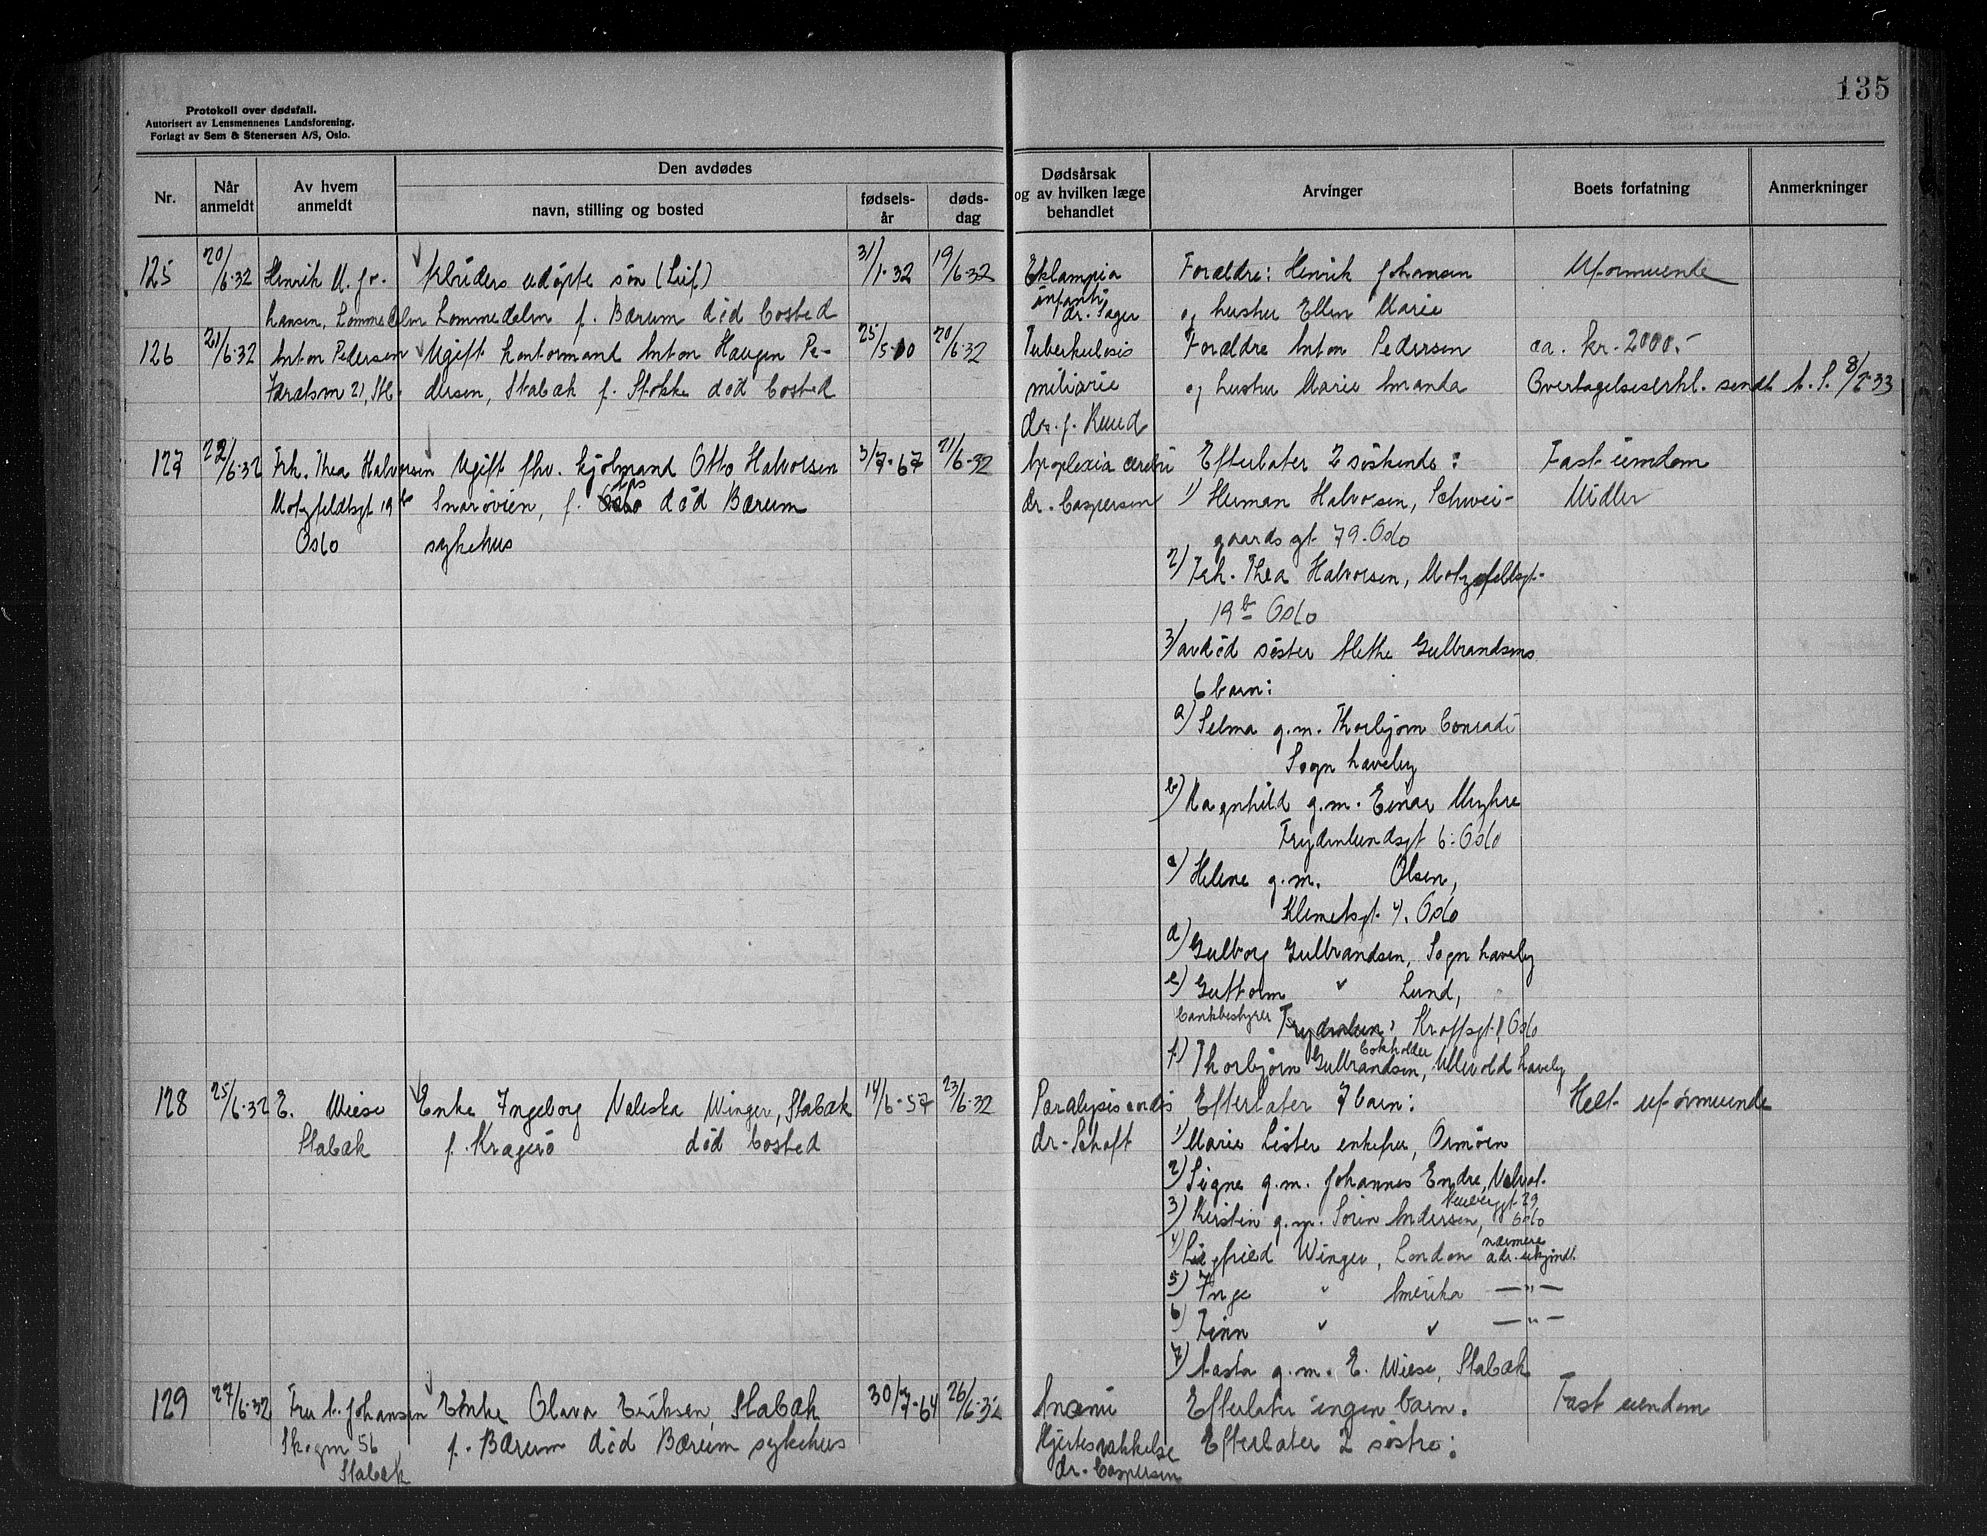 135
Protokoll over dødsfall.
Autorisert av Lensmennenes Landsforening.
Forlagt av Sem & Stenersen A/S, Oslo.
Nr.
Når anmeldt
Av hvem anmeldt
Den avdødes
navn, stilling og bosted
fødsels-år
døds-dag
Dødsårsak og av hvilken læge behandlet
Arvinger
Boets forfatning
Anmerkninger
125 20/6-32 Henrik M. Jo- udøpte søn (Leif) 31/1-32 19/6-32 Eklampia Forældre: Henrik Johansen Uformuende
hansen, Lommedalen Lommedalen f. Bærum død bosted infanti dr. Sager og hustru Ellen Marie
126 21/6-32 Anton Pedersen Ugift kontormand Anton Haugen Pe- 25/5-10 20/6-32 Tuberkulosis Forældre Anton Pedersen ca. kr. 2000.-
21, Stb. dersen, Stabæk f. Stokke død bosted miliarie og hustru Marie Amanda Overtagelseserkl. sendt A. S. 8/2-33
dr. J. Ruud
127 22/6-32 Frk. Thea Halvorsen Ugift fhv. kjølmand Otto Halvorsen 3/7-67 21/6-32 Apoplexia cerebri Efterlater 2 søskende: Fast eiendom
Motzfeldtsgt 19 b Snarøvien, f. Oslo død Bærum dr. Caspersen 1) Herman Halvorsen, Schwei- Midler
Oslo sykehus gaards gt. 79. Oslo
2) Frk. Thea Halvorsen, Motzfeldtsgt.
19 b Oslo
3) avdød søster Alethe Gulbrandsens
6 barn:
a) Selma g.m. Thorbjørn Conradi
Sogn haveby
b) Ragnhild g.m. Einar Myhre
Frydenlundsgt 6. Oslo
c) Helene g.m. Olsen,
Klemetsgt. 4. Oslo
d) Gulborg Gulbrandsen, Sogn haveby
e) Guttorm " Lund,
bankbestyrer Frydenlun, Kroffsgt. 1 Oslo
bokholder
f) Thorbjørn Gulbrandsen, Ullevold haveby
128 25/6-32 E. Wiese Enke Ingeborg Valeska Winger, Stabæk 14/6-57 23/6-32 Paralysis cordis Efterlater 7 barn: Helt uformuende
Stabæk f. Kragerø død bosted dr. Schaft 1) Marie Lister enkefru, Ormøen
2) Signe g.m. Johannes Endre,
3) Kirstin g.m. Sören Andersen, 29 Oslo
4) Siegfried Winger, London nærmere adr. ukjendt.
5) Inge " Amerika — " —
6) Finn " " — " —
7) Aasta g.m. E. Wiese, Stabæk
129 27/6-32 Fru A. Johansen Enke Olava Eriksen, Stabæk 30/7-64 26/6-32 Anæmi Efterlater ingen barn. Fast eiendom
Skogen 56 f. Bærum død Bærum sykehus Hjertesvakkelse Efterlater 2 søstre:
Stabæk dr. Caspersen